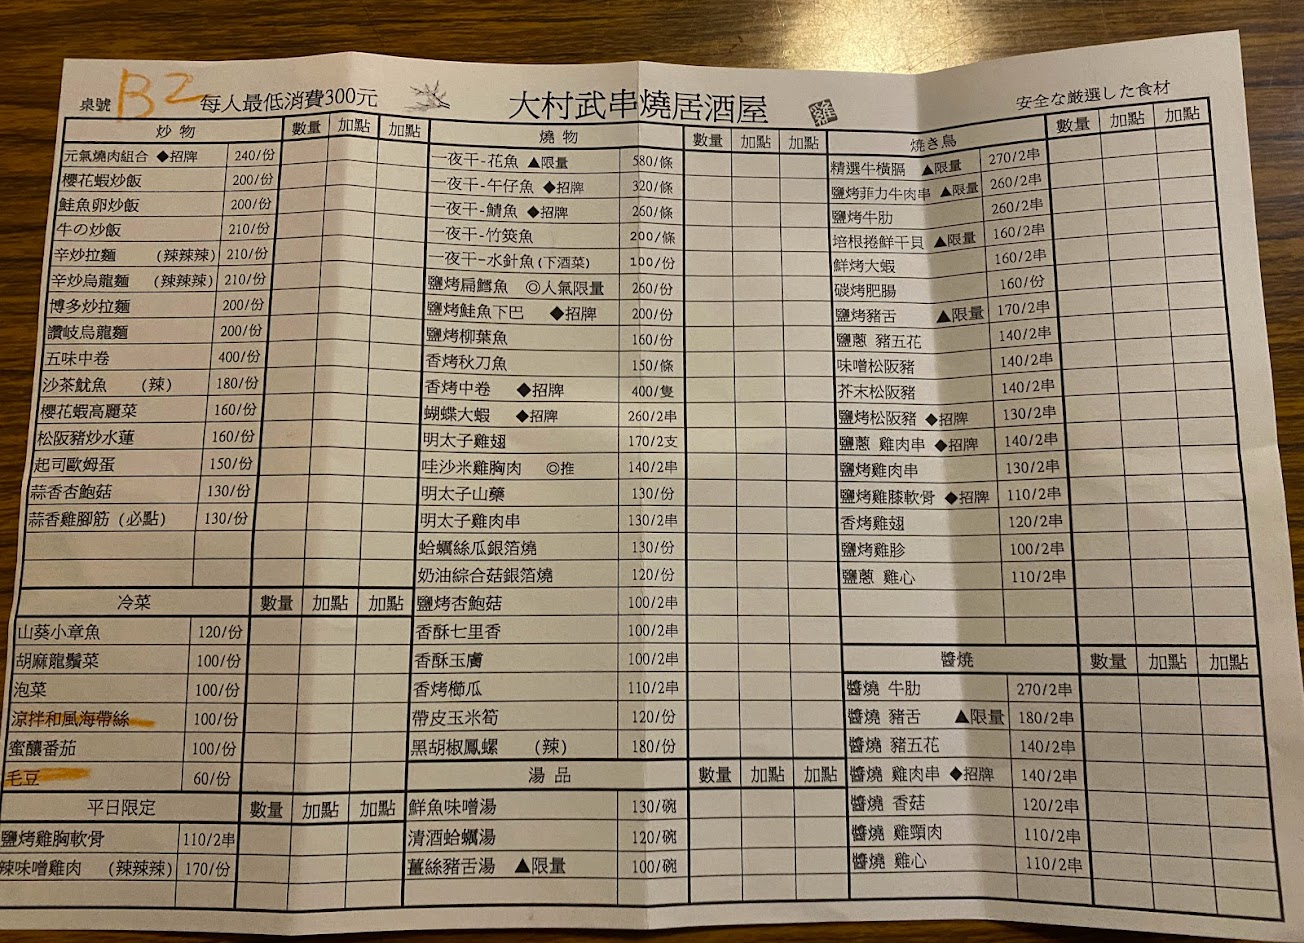 桌號 B2 每人最低消費300元 大村武串燒居酒屋 雞 安全な厳選した食材
炒 物 數量 加點 加點
元氣燒肉組合 ◆招牌 240/份
櫻花蝦炒飯 200/份
鮭魚卵炒飯 200/份
牛の炒飯 210/份
辛炒拉麵 (辣辣辣) 210/份
辛炒烏龍麵 (辣辣辣) 210/份
博多炒拉麵 200/份
讚岐烏龍麵 200/份
五味中卷 400/份
沙茶魷魚 (辣) 180/份
櫻花蝦高麗菜 160/份
松阪豬炒水蓮 160/份
起司歐姆蛋 150/份
蒜香杏鮑菇 130/份
蒜香雞腳筋 (必點) 130/份
冷菜 數量 加點 加點
山葵小章魚 120/份
胡麻龍鬚菜 100/份
泡菜 100/份
涼拌和風海帶絲 100/份
蜜釀番茄 100/份
毛豆 60/份
平日限定 數量 加點 加點
鹽烤雞胸軟骨 110/2串
辣味噌雞肉 (辣辣辣) 170/份
燒 物 數量 加點 加點
一夜干-花魚 ▲限量 580/條
一夜干-午仔魚 ◆招牌 320/條
一夜干-鯖魚 ◆招牌 260/條
一夜干-竹筴魚 200/條
一夜干-水針魚(下酒菜) 100/份
鹽烤扁鱈魚 ◎人氣限量 260/份
鹽烤鮭魚下巴 ◆招牌 200/份
鹽烤柳葉魚 160/份
香烤秋刀魚 150/條
香烤中卷 ◆招牌 400/隻
蝴蝶大蝦 ◆招牌 260/2串
明太子雞翅 170/2支
哇沙米雞胸肉 ◎推 140/2串
明太子山藥 130/份
明太子雞肉串 130/2串
蛤蠣絲瓜銀箔燒 130/份
奶油綜合菇銀箔燒 120/份
鹽烤杏鮑菇 100/2串
香酥七里香 100/2串
香酥玉膚 100/2串
香烤櫛瓜 110/2串
帶皮玉米筍 120/份
黑胡椒鳳螺 (辣) 180/份
湯 品 數量 加點 加點
鮮魚味噌湯 130/碗
清酒蛤蠣湯 120/碗
薑絲豬舌湯 ▲限量 100/碗
焼き鳥 數量 加點 加點
精選牛橫膈 ▲限量 270/2串
鹽烤菲力牛肉串 ▲限量 260/2串
鹽烤牛肋 260/2串
培根捲鮮干貝 ▲限量 160/2串
鮮烤大蝦 160/2串
碳烤肥腸 160/份
鹽烤豬舌 ▲限量 170/2串
鹽蔥 豬五花 140/2串
味噌松阪豬 140/2串
芥末松阪豬 140/2串
鹽烤松阪豬 ◆招牌 130/2串
鹽蔥 雞肉串 ◆招牌 140/2串
鹽烤雞肉串 130/2串
鹽烤雞膝軟骨 ◆招牌 110/2串
香烤雞翅 120/2串
鹽烤雞胗 100/2串
鹽蔥 雞心 110/2串
醬燒 數量 加點 加點
醬燒 牛肋 270/2串
醬燒 豬舌 ▲限量 180/2串
醬燒 豬五花 140/2串
醬燒 雞肉串 ◆招牌 140/2串
醬燒 香菇 120/2串
醬燒 雞頸肉 110/2串
醬燒 雞心 110/2串